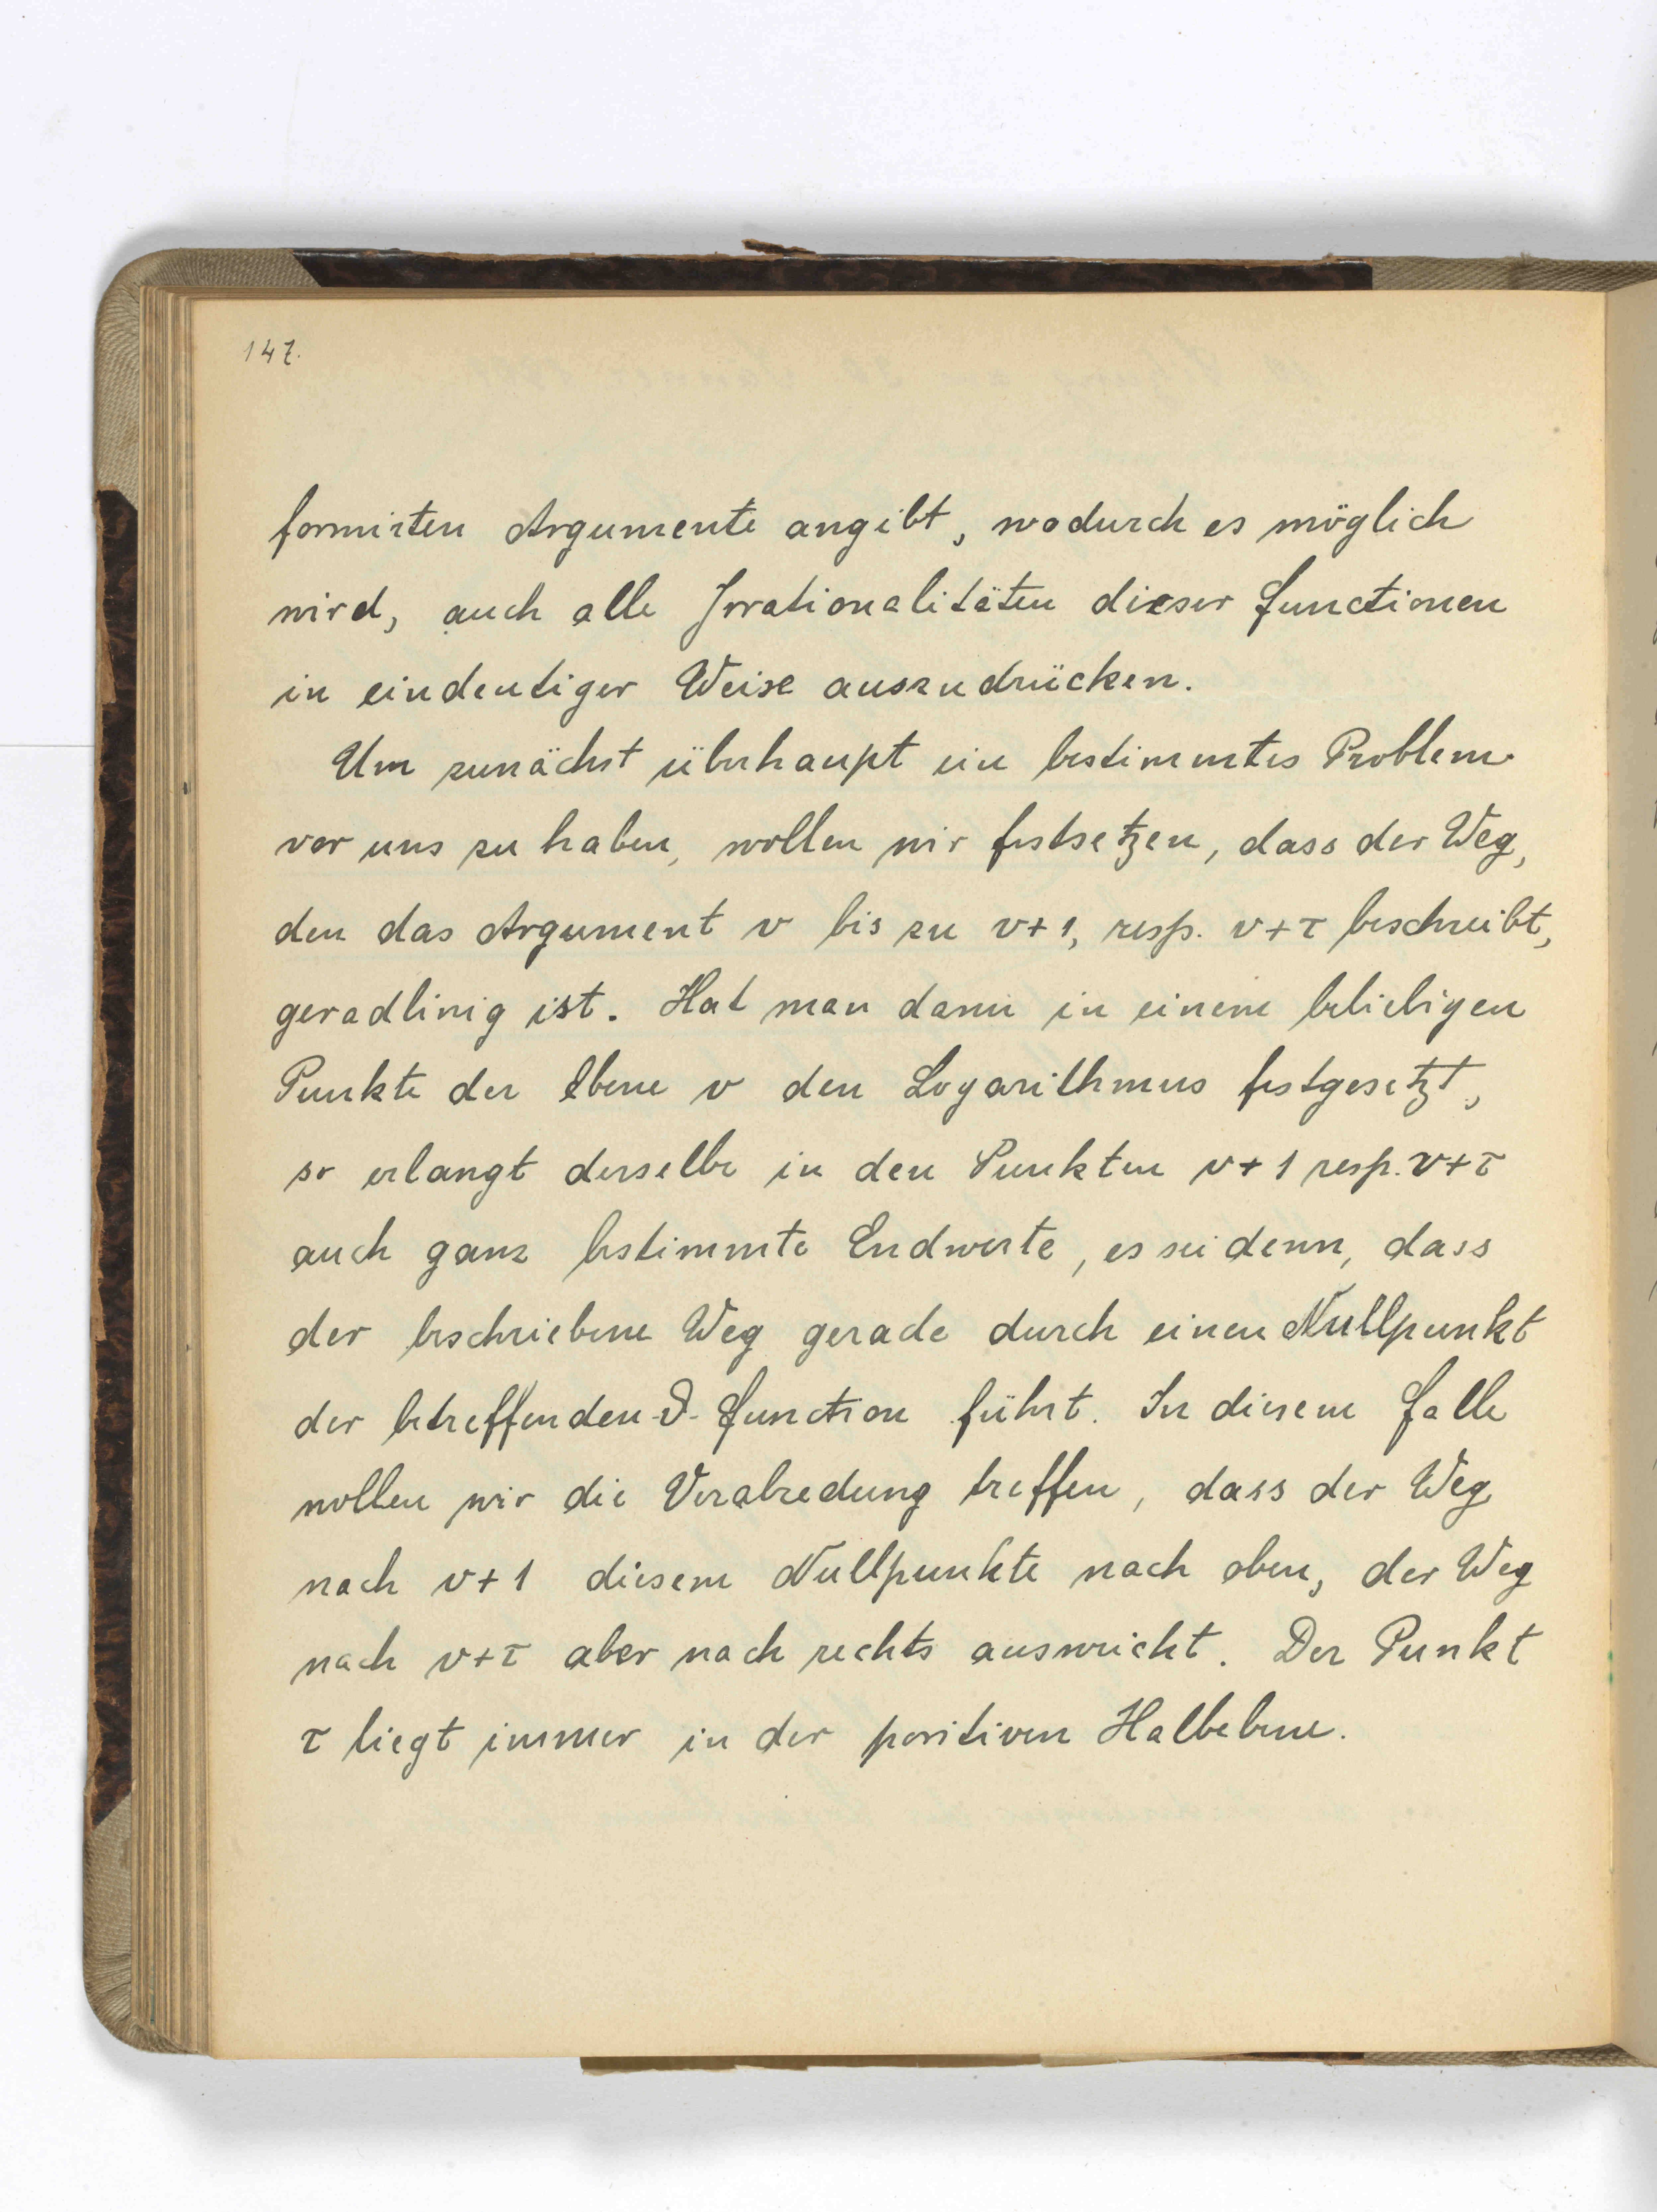 147.
formirten Argumente angibt, wodurch es möglich
wird, auch alle Irrationalitäten dieser Functionen
in eindeutiger Weise auszudrücken.
Um zunächst überhaupt ein bestimmtes Problem
vor uns zu haben, wollen wir festsetzen, dass der Weg,
den das Argument v bis zu v+1, resp. v+τ beschreibt,
geradlinig ist. Hat man dann in einem beliebigen
Punkte der Ebene v den Logarithmus festgesetzt,
so erlangt derselbe in den Punkten v+1 resp. v+τ
auch ganz bestimmte Endwerte, es sei denn, dass
der beschriebene Weg gerade durch einen Nullpunkt
der betreffenden ϑ-Function führt. In diesem Falle
wollen wir die Verabredung treffen, dass der Weg
nach v+1 diesem Nullpunkte nach oben, der Weg
nach v+τ aber nach rechts ausweicht. Der Punkt
τ liegt immer in der positiven Halbebene.